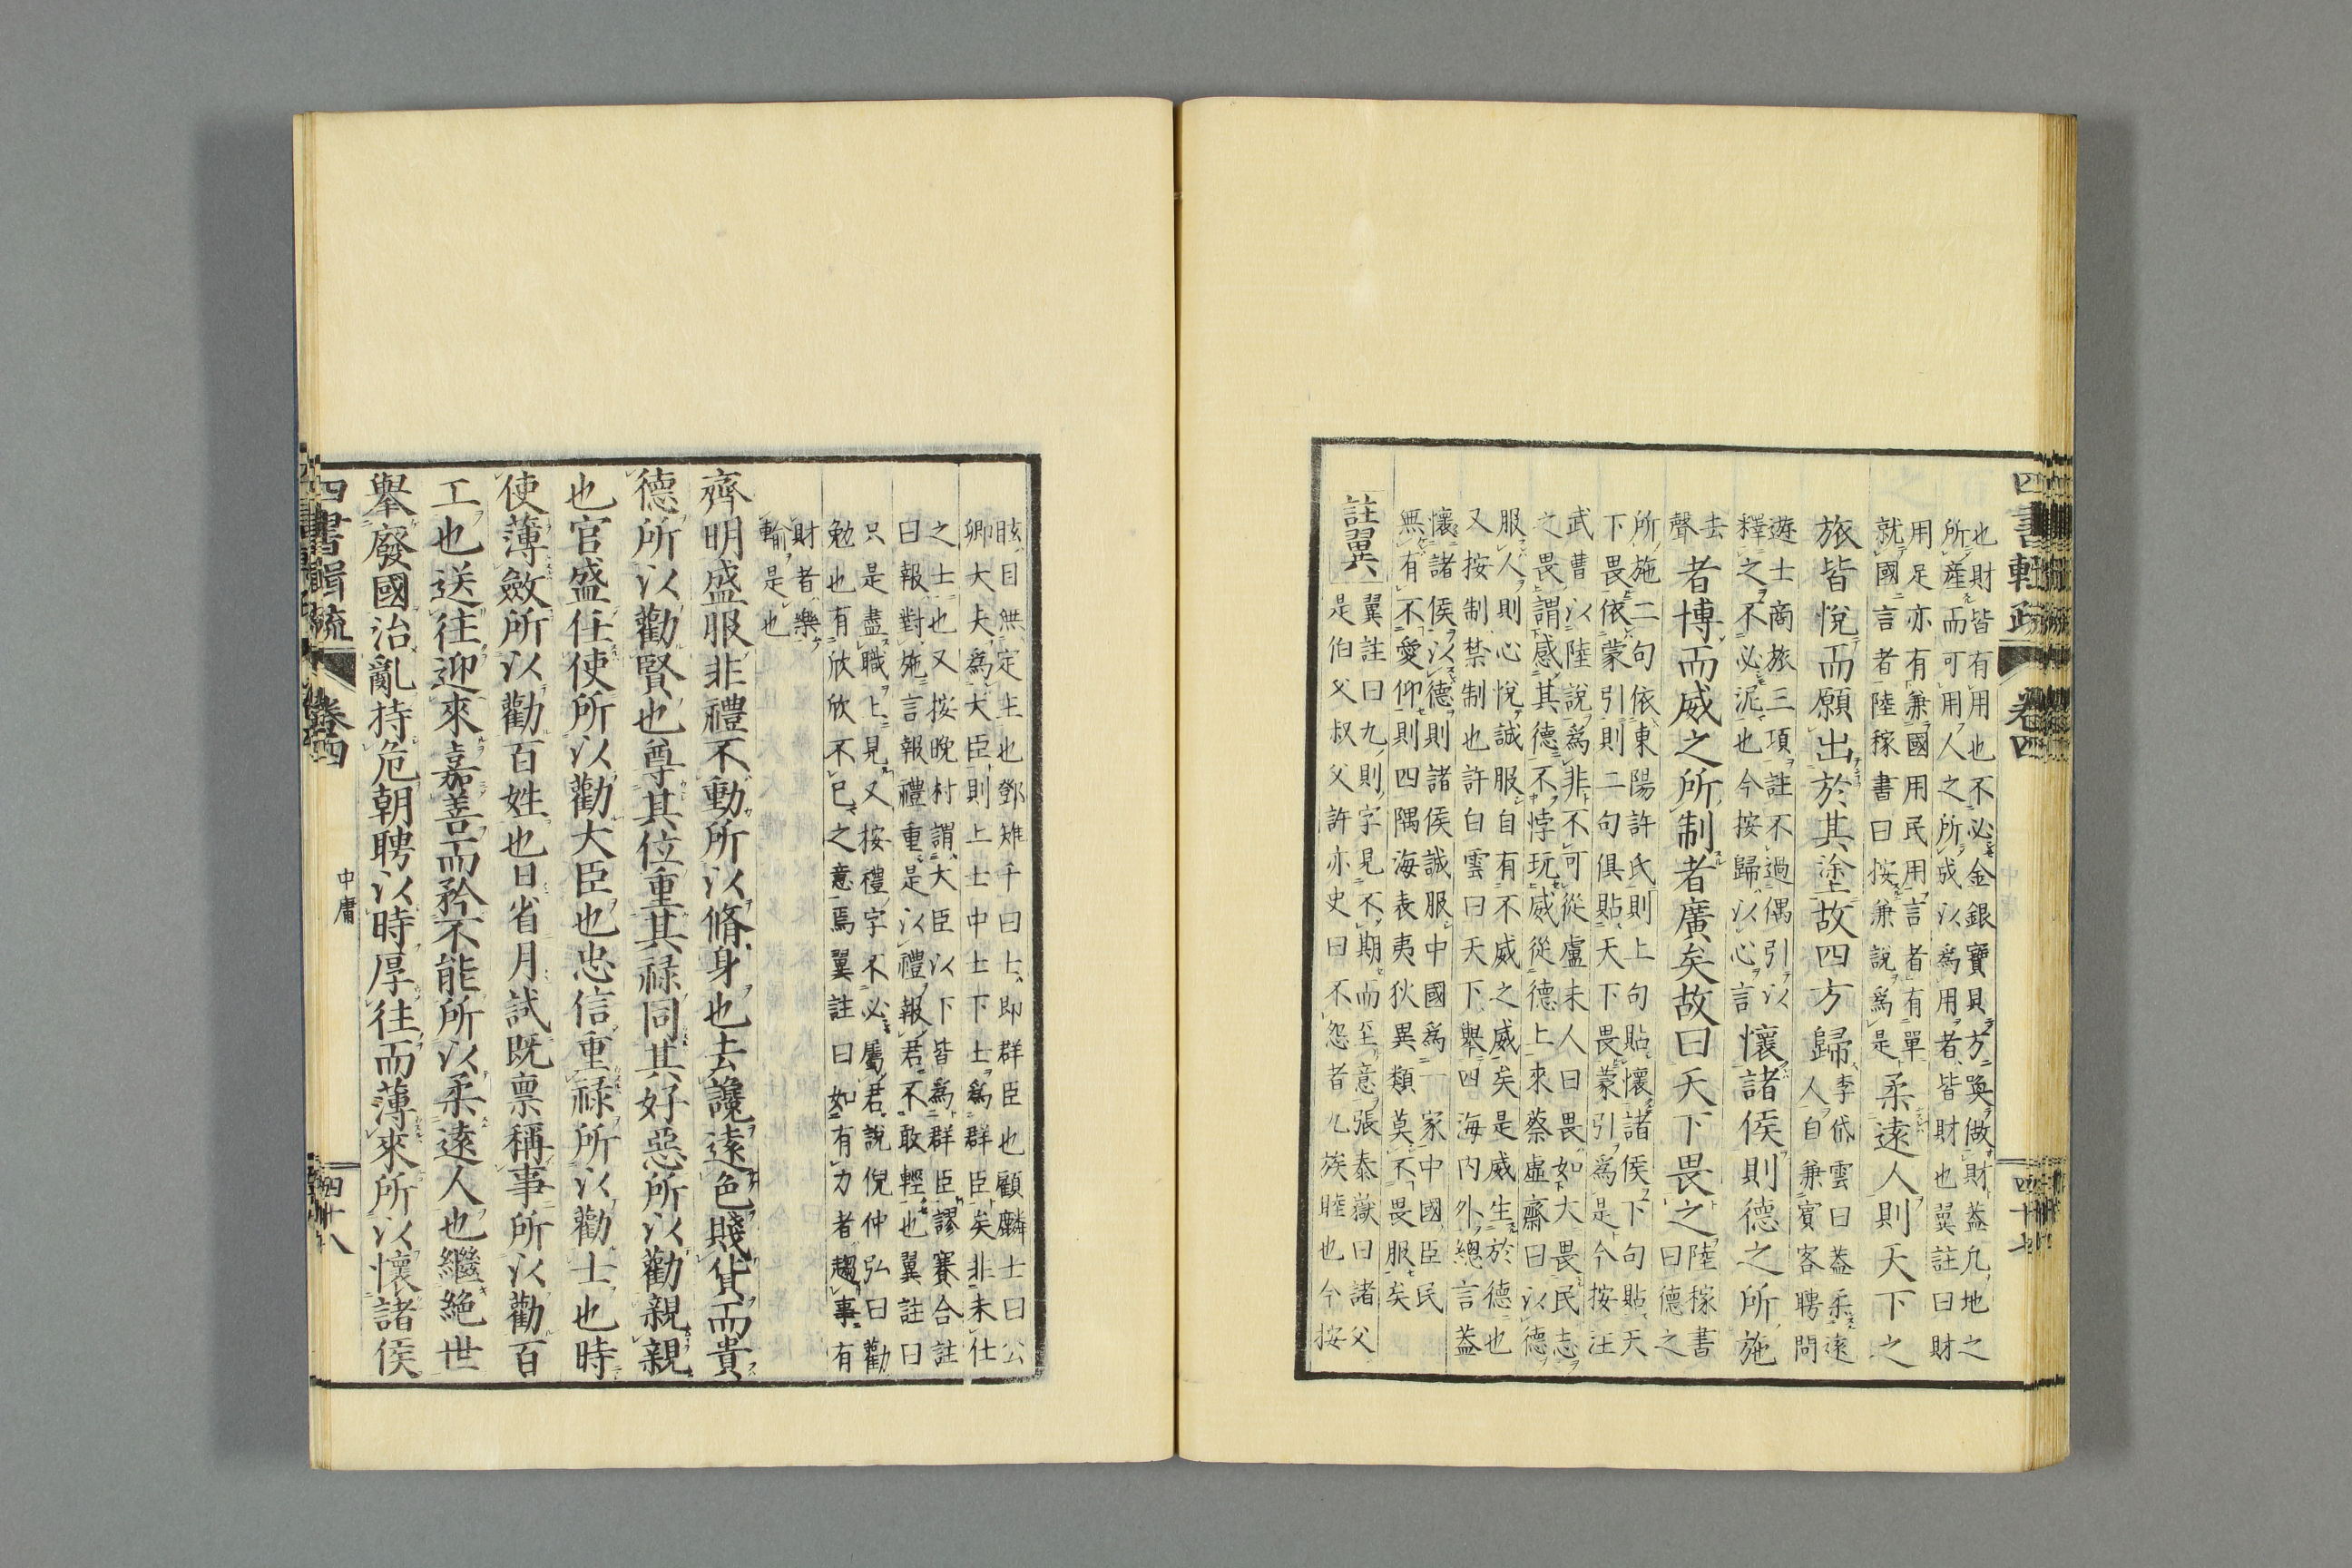 四書輯疏 卷四 四十七
也財皆有用也不必金銀寶貝方喚做財蓋凡地之
所産而可用人之所成以爲用者皆財也翼註曰財
用足亦有兼國用民用言者有單
就國言者陸稼書曰按兼說爲是柔遠人則天下之
旅皆悅而願出於其塗故四方歸李岱雲曰蓋柔遠
人自兼賓客聘問
遊士商旅三項註不過偶引以
釋之不必泥也今按歸以心言懷諸侯則德之所施
去
聲者博而威之所制者廣矣故曰天下畏之陸稼書
曰德之
所施二句依東陽許氏則上句貼懷諸侯下句貼天
下畏依蒙引則二句俱貼天下畏蒙引爲是今按汪
武曹以陸說爲非不可從盧未人曰畏如大畏民志
之畏謂感其德不悖玩威從德上來蔡虛齋曰以德
服人則心悅誠服自有不威之威矣是威生於德也
又按制禁制也許白雲曰天下舉四海內外總言蓋
懷諸侯以德則諸侯誠服中國爲一家中國臣民
無有不愛仰則四隅海表夷狄異類莫不畏服矣
註翼翼註曰九則字見不期而至意張泰嶽曰諸父
是伯父叔父許亦史曰不怨者九族睦也今按
眩目無定主也鄧雉千曰士即群臣也顧麟士曰公
卿大夫爲大臣則上士中士下士爲群臣矣非未仕
之士也又按晚村謂大臣以下皆爲群臣謬賽合註
曰報對施言報禮重是以禮報君不敢輕也翼註曰
只是盡職上見又按禮字不必屬君說倪仲弘曰勸
勉也有欣欣不已之意焉翼註曰如有力者趨事有
財者樂
輸是也
齊明盛服非禮不動所以脩身也去讒遠色賤貨而貴
德所以勸賢也尊其位重其祿同其好惡所以勸親親
也官盛任使所以勸大臣也忠信重祿所以勸士也時
使薄斂所以勸百姓也日省月試既稟稱事所以勸百
工也送往迎來嘉善而矜不能所以柔遠人也繼絶世
舉廢國治亂持危朝聘以時厚往而薄來所以懷諸侯
四書輯疏 卷四 中庸 四十八